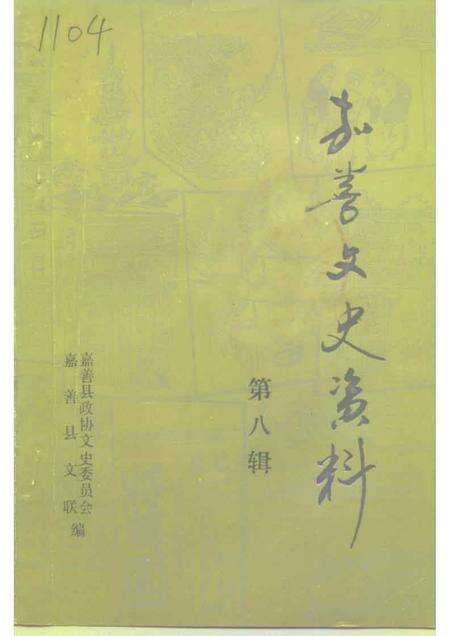 1104
嘉善文史资料
第八辑
嘉善县政协文史委员会
嘉善县文联
编